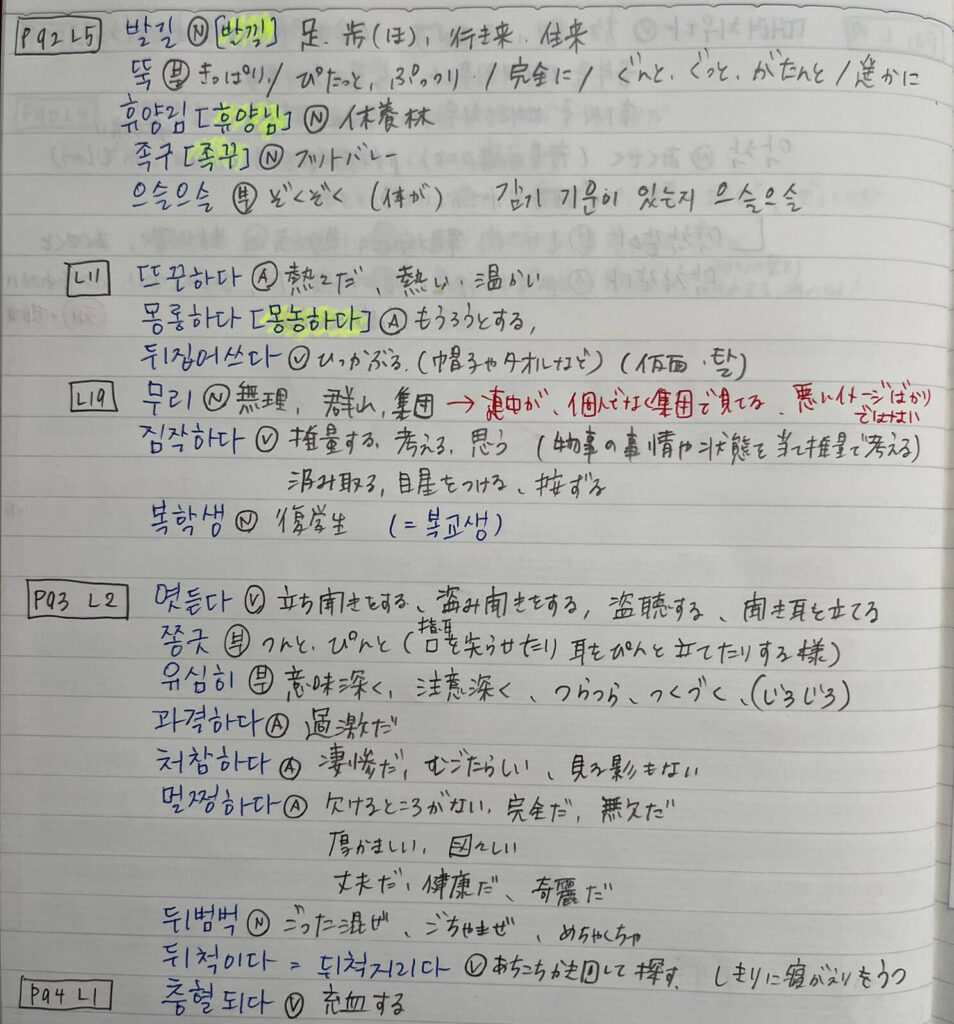 P92 L5 발길 Ⓝ [발낄] 足. 歩(ほ), 行き来. 往来
뚝 ㊫ きっぱり, / ぴたっと, ぷっつり, / 完全に / ぐんと, ぐっと, がたんと / 遥かに
휴양림 [휴양님] Ⓝ 休養林
족구 [족꾸] Ⓝ フットバレー
으슬으슬 ㊫ ぞくぞく (体が) 감기 기운이 있는지 으슬으슬
L11 뜨끈하다 Ⓐ 熱々だ、熱い・温かい
몽롱하다 [몽농하다] Ⓐ もうろうとする,
뒤집어쓰다 Ⓥ ひっかぶる. (帽子やタオルなど) (仮面・탈)
L19 무리 Ⓝ 無理, 群れ, 集団 → 連中が、個人でなく集団で見てる、悪いイメージばかり
ではない
짐작하다 Ⓥ 推量する, 考える, 思う (物事の事情や状態を当て推量で考える)
汲み取る, 目星をつける、按ずる
복학생 Ⓝ 復学生 (= 복교생)
P93 L2 엿듣다 Ⓥ 立ち聞きをする、盗み聞きをする, 盗聴する、聞き耳を立てる
쫑긋 ㊫ つんと、ぴんと (口を尖らせたり 耳をぴんと立てたりする様)
유심히 ㊫ 意味深く, 注意深く、つらつら、つくづく、(じろじろ)
과격하다 Ⓐ 過激だ
처참하다 Ⓐ 凄惨だ, むごたらしい、見る影もない
멀쩡하다 Ⓐ 欠けるところがない. 完全だ, 無欠だ
厚かましい, 図々しい
丈夫だ, 健康だ、奇麗だ
뒤범벅 Ⓝ ごった混ぜ、ごちゃまぜ、めちゃくちゃ
뒤척이다 = 뒤척거리다 Ⓥ あちこちかき回して探す. しきりに寝がえりをうつ
P94 L1 충혈되다 Ⓥ 充血する